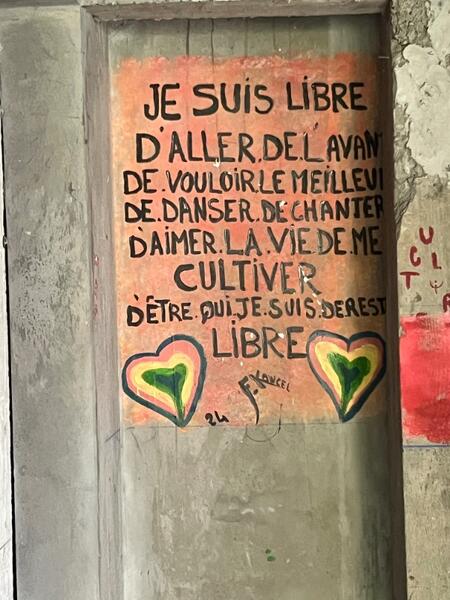 JE SUIS LIBRE
D'ALLER.DE.L'AVANT
DE.VOULOIR.LE MEILLEUR
DE.DANSER.DE CHANTER
D'AIMER.LA.VIE DE.ME
CULTIVER
D'ÊTRE.QUI.JE.SUIS.DE REST
LIBRE
24 F. LANCEL